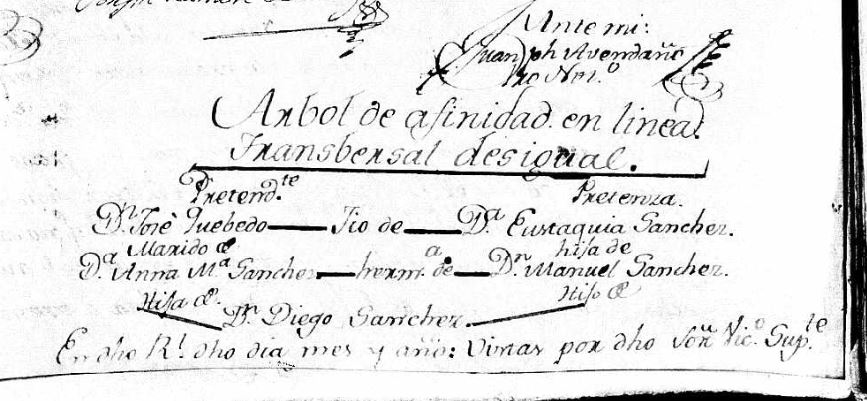 Ante mi:
Juan Jph Avendaño
Arbol de afinidad en linea
Transbersal desigual.
Pretend.te Pretenza.
Dn. José Quebedo — Tio de — Da. Eustaquia Sanchez.
Marido de hija de
Da. Anna Ma. Sanchez — herm.a de — Dn. Manuel Sanchez.
Hija de. Hijo de
Dn. Diego Sanchez.
En dho Rl. dho dia mes y año: Vistas por dho Sor. Vic.o Sup.te